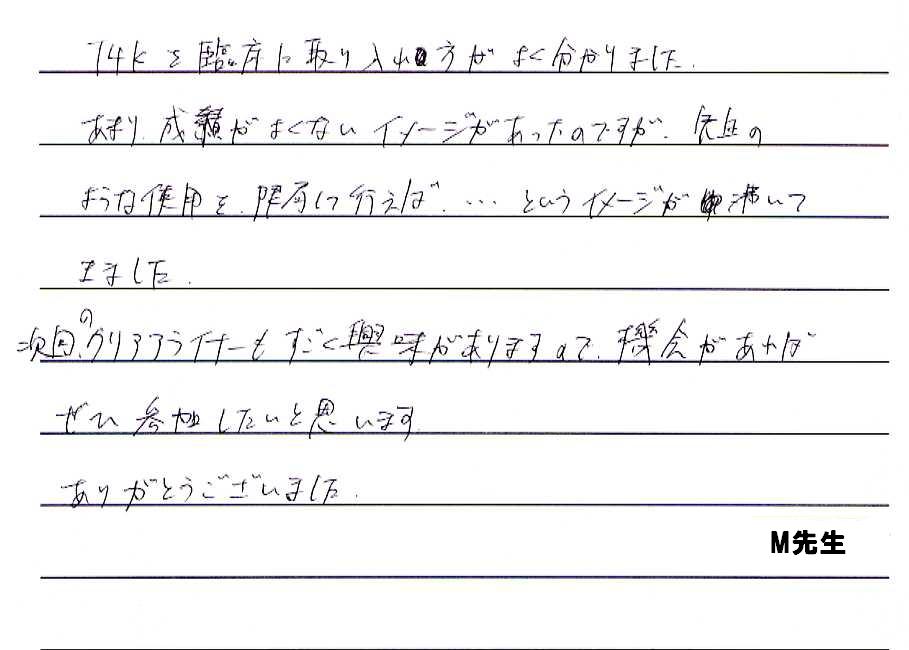 T4kを臨床に取り入れ方がよく分かりました.
あまり、成績がよくないイメージがあったのですが、の
ような使用を、限局して行えば、…というイメージが沸いて
きました.
次回のクリアアライナーもすごく興味がありますので、機会があれば
ぜひ参加したいと思います.
ありがとうございました.
M先生